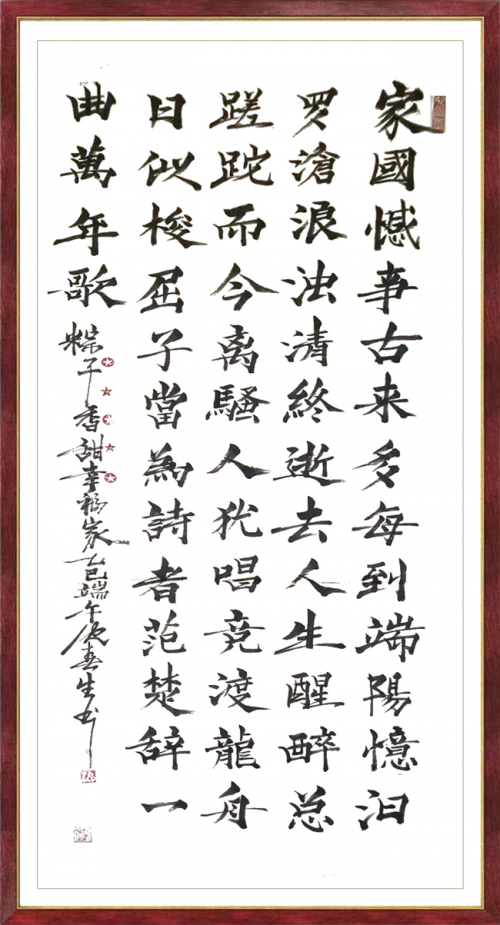 家國憾事古来多每到端陽憶汨
罗滄浪浊清終逝去人生醒醉总
蹉跎而今离騷人犹唱竞渡龍舟
日似梭屈子當為詩者范楚辞一
曲萬年歌
粽子香甜幸福家乙巳端午春生书